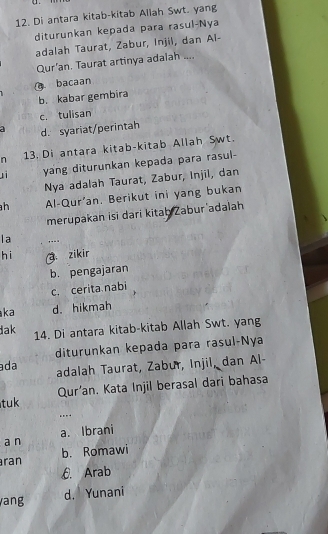 12. Di antara kitab-kitab Allah Swt. yang
diturunkan kepada para rasul-Nya
adalah Taurat, Zabur, Injil, dan Al-
Qur'an. Taurat artinya adalah ....
a. bacaan
b. kabar gembira
c. tulisan
d. syariat/perintah
13. Di antara kitab-kitab Allah Swt.
yang diturunkan kepada para rasul-
Nya adalah Taurat, Zabur, Injil, dan
Al-Qur'an. Berikut ini yang bukan
merupakan isi dari kitab Zabur adalah
....
a. zikir
b. pengajaran
c. cerita nabi
d. hikmah
14. Di antara kitab-kitab Allah Swt. yang
diturunkan kepada para rasul-Nya
adalah Taurat, Zabur, Injil, dan Al-
Qur'an. Kata Injil berasal dari bahasa
....
a. Ibrani
b. Romawi
c. Arab
d. Yunani